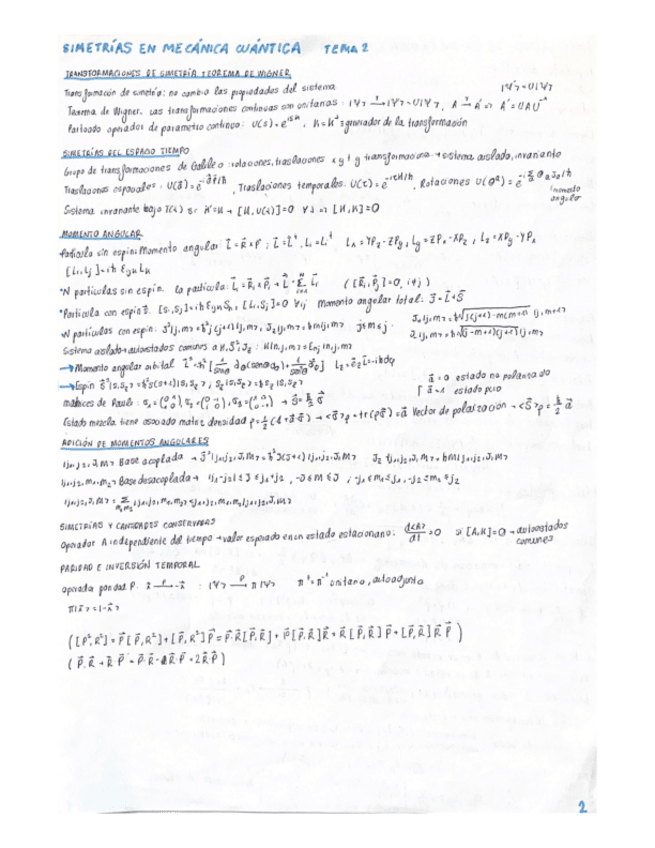 SIMETRÍAS EN MECÁNICA CUÁNTICA TEMA 2
TRANSFORMACIONES DE SIMETRÍA TEOREMA DE WIGNER
Transformación de simetría: no cambia las propiedades del sistema |Ψ'> = U|Ψ>
Teorema de Wigner. Las transformaciones continuas son unitarias: |Ψ> → |Ψ'> = U|Ψ>, A → A' => A' = UAU⁻¹
operador de parametro continuo: U(s) = e^{isK}, K = K⁺ generador de la transformación
SIMETRÍAS DEL ESPACIO TIEMPO
Grupo de transformaciones de Galileo: rotaciones, traslaciones x y t y transformaciones → sistema aislado, invariante
Traslaciones espaciales: , Traslaciones temporales: , Rotaciones momento angular
Sistema invariante bajo T(λ) si H' = H → [H, U(λ)] = 0 ∀λ => [H, K] = 0
MOMENTO ANGULAR
Partícula sin espin: Momento angular: L = R × P; L_x = YP_z - ZP_y, L_y = ZP_x - XP_z, L_z = XP_y - YP_x
[L_i, L_j] = iħ ε_ijk L_k
•N partículas sin espin. la partícula: ([R_i, P_j] = 0, i≠j)
•Partícula con espin: [S_i, S_j] = iħ ε_ijk S_k, [L_i, S_j] = 0 ∀ij Momento angular total: J = L + S
•N partículas con espin: J²|j,m> = ħ²j(j+1)|j,m>, J_z|j,m> = ħm|j,m>
Sistema aislado → autoestados comunes a H, J², J_z: H|n,j,m> = E_nj|n,j,m>
→ Momento angular orbital
→ Espin S²|s,s_z> = ħ²s(s+1)|s,s_z>, S_z|s,s_z> = ħs_z|s,s_z> a = 0 estado no polarizado
matrices de Pauli: → S = ħ/2 σ a = 1 estado puro
Estado mezcla tiene asociado matriz densidad ρ = ½(1 + a·σ) → <σ>ρ = tr(ρσ) = a Vector de polarización → <S>ρ = ħ/2 a
ADICIÓN DE MOMENTOS ANGULARES
|j₁,j₂,J,M> Base acoplada → J²|j₁,j₂,J,M> = ħ²J(J+1)|j₁,j₂,J,M> J_z|j₁,j₂,J,M> = ħM|j₁,j₂,J,M>
|j₁,j₂,m₁,m₂> Base desacoplada → |j₁-j₂| ≤ J ≤ j₁+j₂, -J ≤ M ≤ J, -j₁ ≤ m₁ ≤ j₁, -j₂ ≤ m₂ ≤ j₂
|j₁,j₂,J,M> = Σ |j₁,j₂,m₁,m₂><j₁,j₂,m₁,m₂|j₁,j₂,J,M>
SIMETRÍAS Y CANTIDADES CONSERVADAS
Operador A independiente del tiempo → valor esperado en un estado estacionario: d<A>/dt = 0 si [A,H] = 0 → autoestados comunes
PARIDAD E INVERSIÓN TEMPORAL
Operador paridad P: x → -x : |Ψ> → π|Ψ> π⁺ = π⁻¹ unitario, autoadjunto
π|x> = |-x>
([P²,R²] = P[P,R²] + [P,R²]P = P·R[P,R] + P[P,R]R + R[P,R]P + [P,R]R P)
2